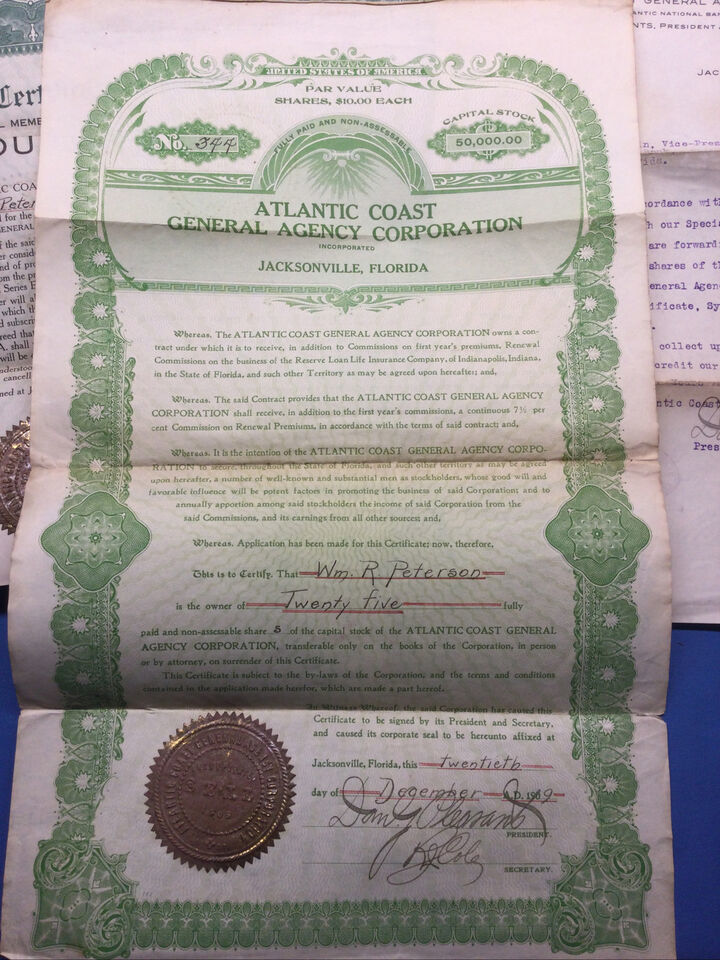 UNITED STATES OF AMERICA
PAR VALUE
SHARES, $10.00 EACH
No. 344
FULLY PAID AND NON-ASSESSABLE
CAPITAL STOCK
$
50,000.00
ATLANTIC COAST
GENERAL AGENCY CORPORATION
INCORPORATED
JACKSONVILLE, FLORIDA
Whereas, The ATLANTIC COAST GENERAL AGENCY CORPORATION owns a con-
tract under which it is to receive, in addition to Commissions on first year's premiums, Renewal
Commissions on the business of the Reserve Loan Life Insurance Company, of Indianapolis, Indiana,
in the State of Florida, and such other Territory as may be agreed upon hereafter; and,
Whereas, The said Contract provides that the ATLANTIC COAST GENERAL AGENCY
CORPORATION shall receive, in addition to the first year's commissions, a continuous 7½ per
cent Commission on Renewal Premiums, in accordance with the terms of said contract; and,
Whereas, It is the intention of the ATLANTIC COAST GENERAL AGENCY CORPO-
RATION to secure, throughout the State of Florida, and such other territory as may be agreed
upon hereafter, a number of well-known and substantial men as stockholders, whose good will and
favorable influence will be potent factors in promoting the business of said Corporation; and to
annually apportion among said stockholders the income of said Corporation from the
said Commissions, and its earnings from all other sources; and,
Whereas, Application has been made for this Certificate; now, therefore,
This is to Certify, That Wm. R. Peterson
is the owner of Twenty five fully
paid and non-assessable share s of the capital stock of the ATLANTIC COAST GENERAL
AGENCY CORPORATION, transferable only on the books of the Corporation, in person
or by attorney, on surrender of this Certificate.
This Certificate is subject to the by-laws of the Corporation, and the terms and conditions
contained in the application made herefor, which are made a part hereof.
In Witness Whereof, the said Corporation has caused this
Certificate to be signed by its President and Secretary,
and caused its corporate seal to be hereunto affixed at
Jacksonville, Florida, this twentieth
day of December A.D. 1909
PRESIDENT.
SECRETARY.
ATLANTIC COAST GENERAL AGENCY CORPORATION
SEAL
Cert
L MEME
OU
IC COA
Peter
d for the
GENERAL
f the said
er consid
nd of pro
om the pr
Series B
er will a
which th
d subscri
reed tha
A. shall
will be
nderstoo
cancell
ned at J
GENERAL A
ANTIC NATIONAL BA
NTS, PRESIDENT
JAC
n, Vice-Pres
ida.
ordance with
h our Specia
are forwardi
shares of th
eneral Agen
ificate, Sy
collect up
credit our
ntic Coast
Pres